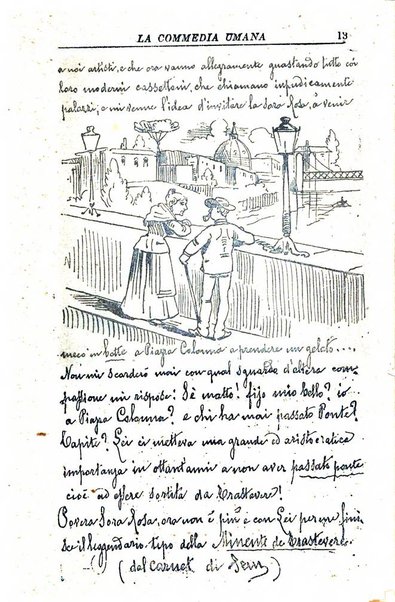 LA COMMEDIA UMANA 13
a noi artisti, e che ora vanno allegramente guastando tutto coi
loro moderni cassettoni, che chiamano impudicamente
palazzi; a mi venne l'idea d'invitare la Sora Rosa, a venir
meco in botte a Piazza Colonna a prendere un gelato....
Non mi scorderò mai con qual sguardo d'altera com-
passione mi rispose: Sè matto! fijo mio bello? io..
a Piazza Colonna? e chi ha mai passato Ponte?
Capite? Lei ci metteva una grande ed aristocratica
importanza in ottant'anni a non aver passato ponte
cioè ad essere sortita da Trastevere!
Povera Sora Rosa, ora non è più e con Lei per me fini-
sce il leggendario tipo della Minente de Trastevere.
(dal Carnet di